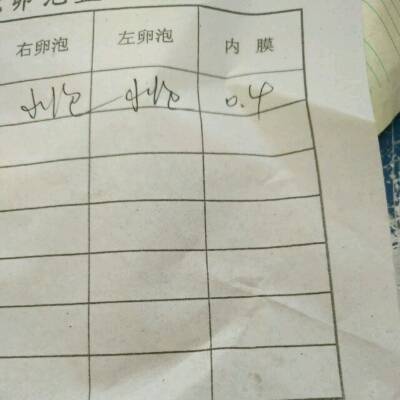 卵泡
右卵泡 左卵泡 内膜
小泡 小泡 0.4